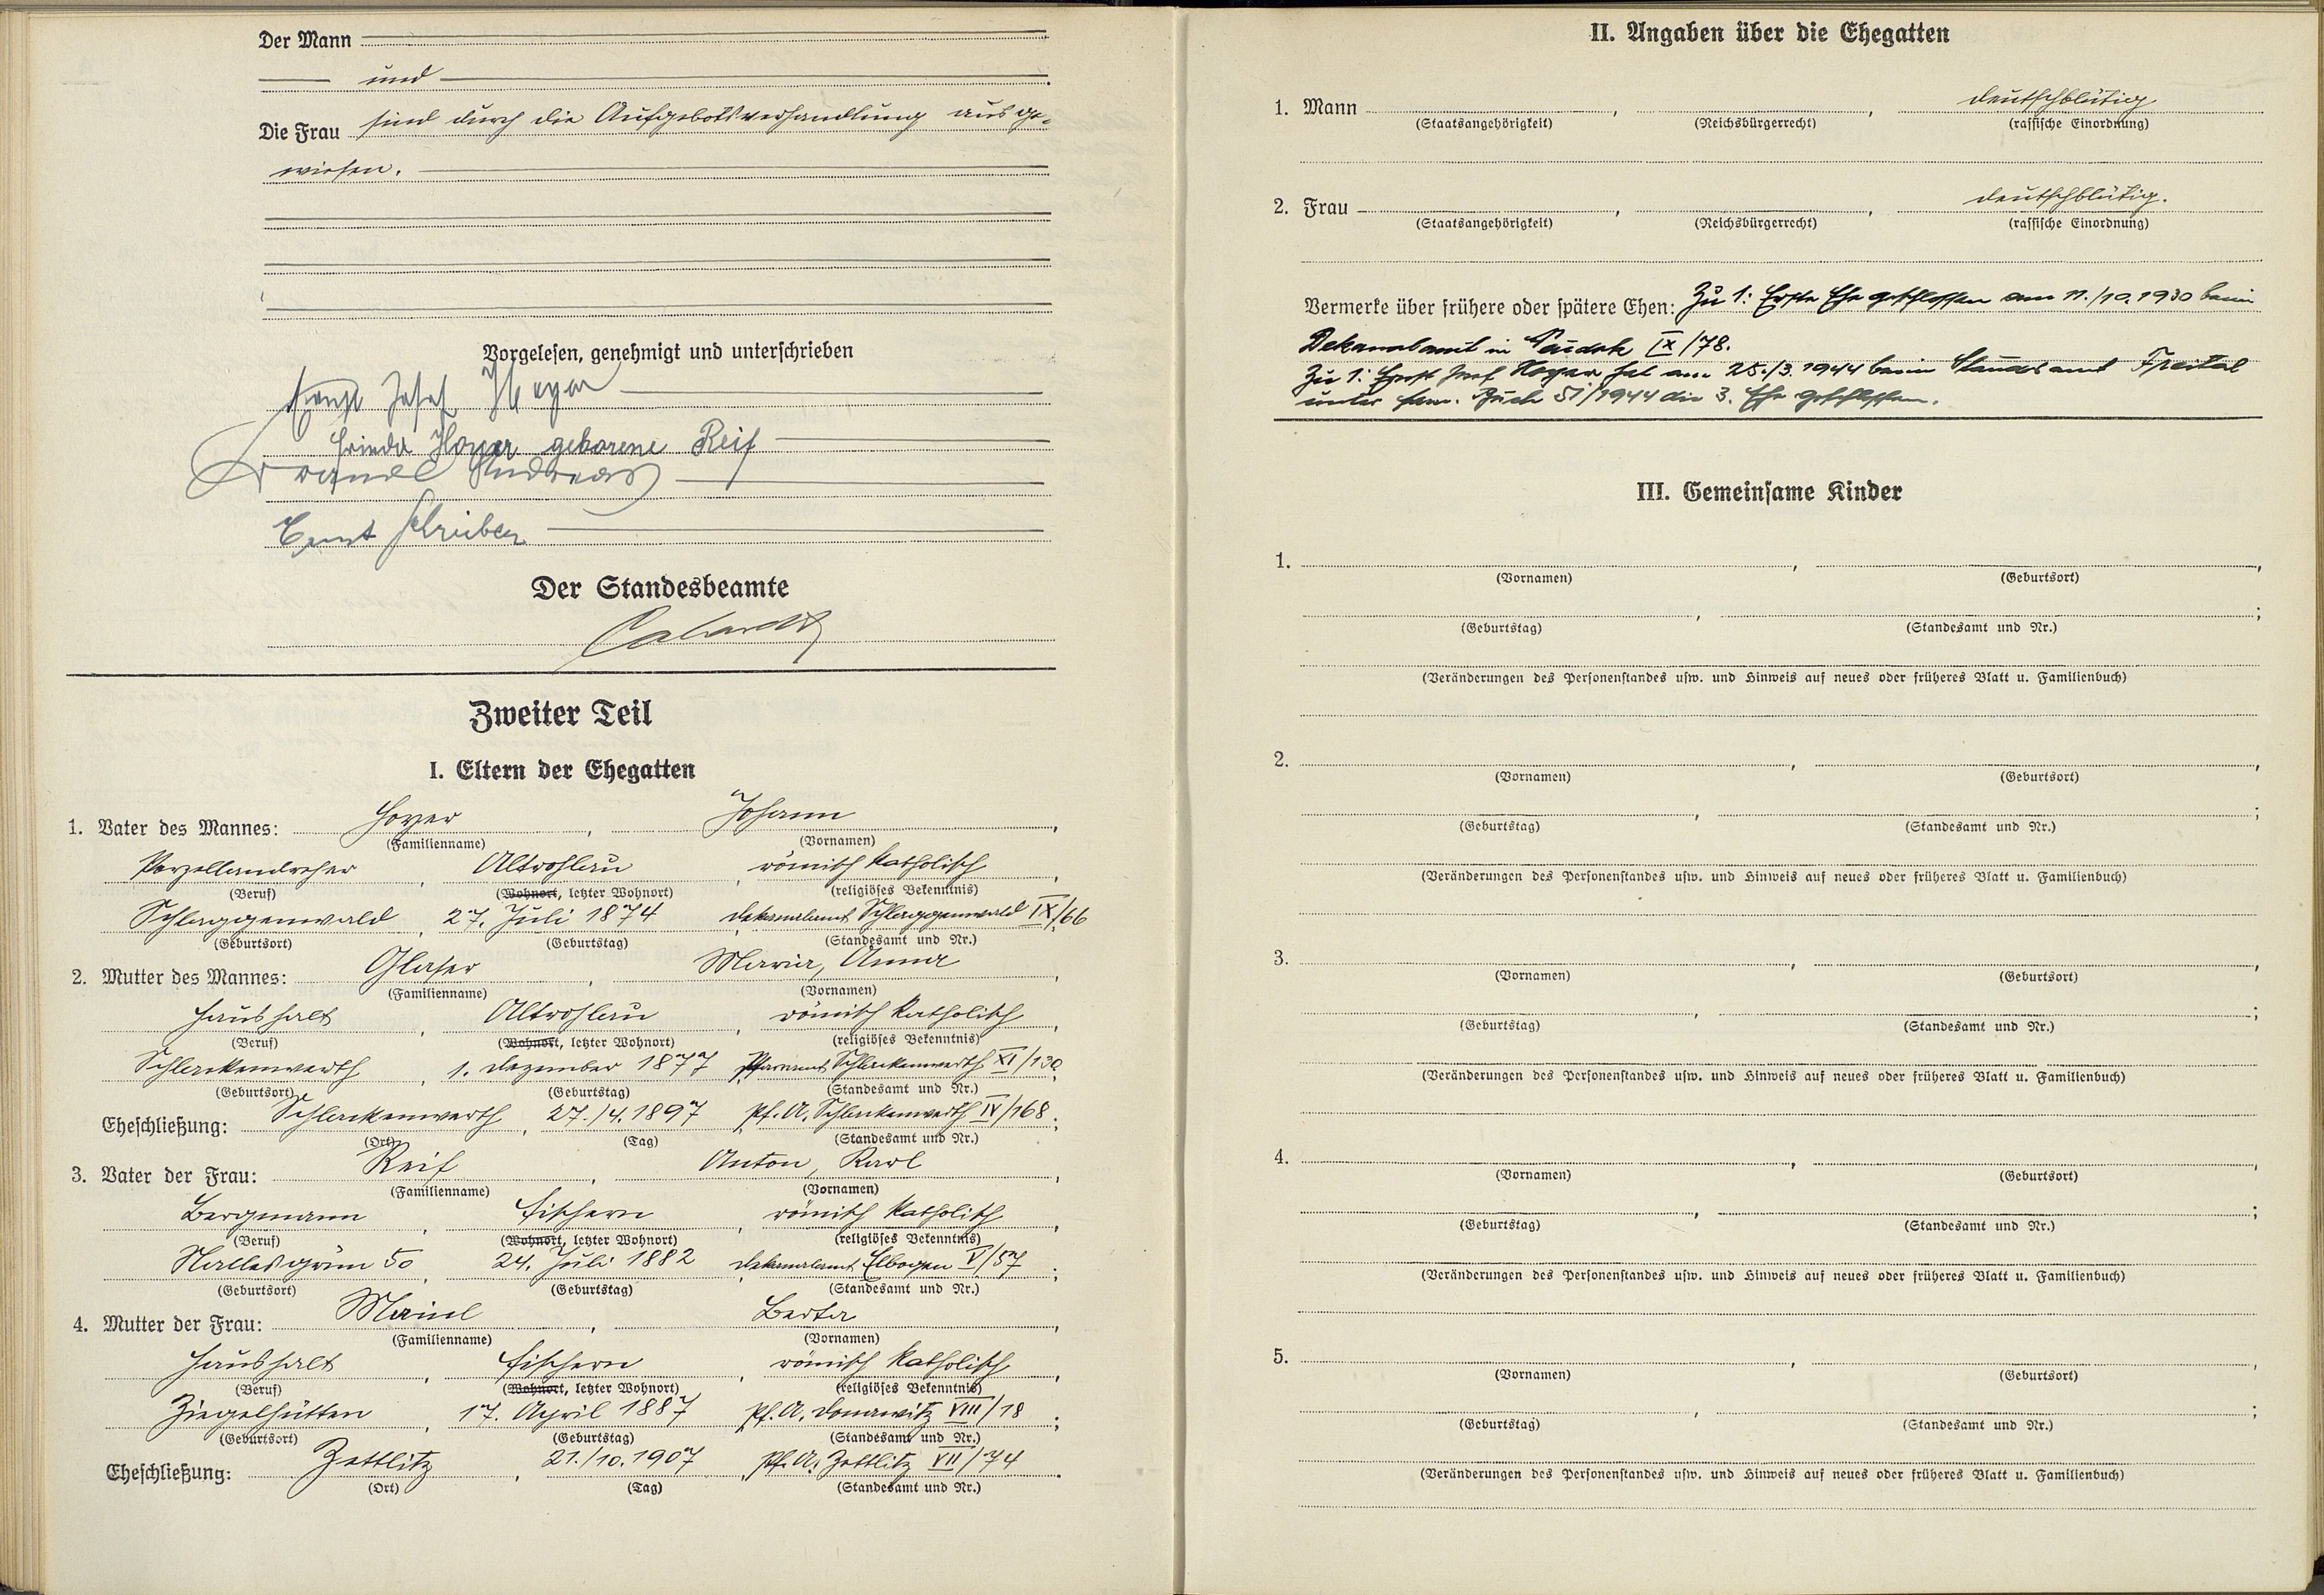 Der Mann
und
Die Frau sind durch die Aufgebotsverhandlung ausge-
wiesen.
Vorgelesen, genehmigt und unterschrieben
Josef Hoyer
Frieda Hoyer geborene Reif
Andreas
Ernst Schreiber
Der Standesbeamte
Zweiter Teil
I. Eltern der Ehegatten
1. Vater des Mannes: Hoyer, Johann,
(Familienname) (Vornamen)
Porzellandreher, Altrohlau, römisch katholisch,
(Beruf) (Wohnort, letzter Wohnort) (religiöses Bekenntnis)
Schlaggenwald, 27. Juli 1874, Dekanalamt Schlaggenwald IX/66
(Geburtsort) (Geburtstag) (Standesamt und Nr.)
2. Mutter des Mannes: Glaser, Maria, Anna,
(Familienname) (Vornamen)
Haushalt, Altrohlau, römisch katholisch,
(Beruf) (Wohnort, letzter Wohnort) (religiöses Bekenntnis)
Schlackenwerth, 1. Dezember 1877, Pfarramt Schlackenwerth XI/130
(Geburtsort) (Geburtstag) (Standesamt und Nr.)
Eheschließung: Schlackenwerth, 27./4.1897, Pf. A. Schlackenwerth IV/168;
(Ort) (Tag) (Standesamt und Nr.)
3. Vater der Frau: Reif, Anton, Karl,
(Familienname) (Vornamen)
Bergmann, Fischern, römisch katholisch,
(Beruf) (Wohnort, letzter Wohnort) (religiöses Bekenntnis)
Nallesgrün 50, 24. Juli 1882, Dekanalamt Elbogen V/57;
(Geburtsort) (Geburtstag) (Standesamt und Nr.)
4. Mutter der Frau: Mainl, Berta,
(Familienname) (Vornamen)
Haushalt, Fischern, römisch katholisch,
(Beruf) (Wohnort, letzter Wohnort) (religiöses Bekenntnis)
Ziegelhütten, 17. April 1887, Pf. A. Donawitz VIII/18;
(Geburtsort) (Geburtstag) (Standesamt und Nr.)
Eheschließung: Zettlitz, 21./10.1907, Pf. A. Zettlitz VII/74.
(Ort) (Tag) (Standesamt und Nr.)
II. Angaben über die Ehegatten
1. Mann , , deutschblütig
(Staatsangehörigkeit) (Reichsbürgerrecht) (rassische Einordnung)
2. Frau , , deutschblütig.
(Staatsangehörigkeit) (Reichsbürgerrecht) (rassische Einordnung)
Vermerke über frühere oder spätere Ehen: Zu 1: Erste Ehe geschlossen am 11./10.1930 beim
Dekanalamt in IX/78.
Zu 1: Josef Hoyer hat am 25./3.1944 beim Standesamt Freital
unter Fam. Buch 51/1944 die 3. Ehe geschlossen.
III. Gemeinsame Kinder
1. , ,
(Vornamen) (Geburtsort)
, ;
(Geburtstag) (Standesamt und Nr.)
(Veränderungen des Personenstandes usw. und Hinweis auf neues oder früheres Blatt u. Familienbuch)
2. , ,
(Vornamen) (Geburtsort)
, ;
(Geburtstag) (Standesamt und Nr.)
(Veränderungen des Personenstandes usw. und Hinweis auf neues oder früheres Blatt u. Familienbuch)
3. , ,
(Vornamen) (Geburtsort)
, ;
(Geburtstag) (Standesamt und Nr.)
(Veränderungen des Personenstandes usw. und Hinweis auf neues oder früheres Blatt u. Familienbuch)
4. , ,
(Vornamen) (Geburtsort)
, ;
(Geburtstag) (Standesamt und Nr.)
(Veränderungen des Personenstandes usw. und Hinweis auf neues oder früheres Blatt u. Familienbuch)
5. , ,
(Vornamen) (Geburtsort)
, ;
(Geburtstag) (Standesamt und Nr.)
(Veränderungen des Personenstandes usw. und Hinweis auf neues oder früheres Blatt u. Familienbuch)